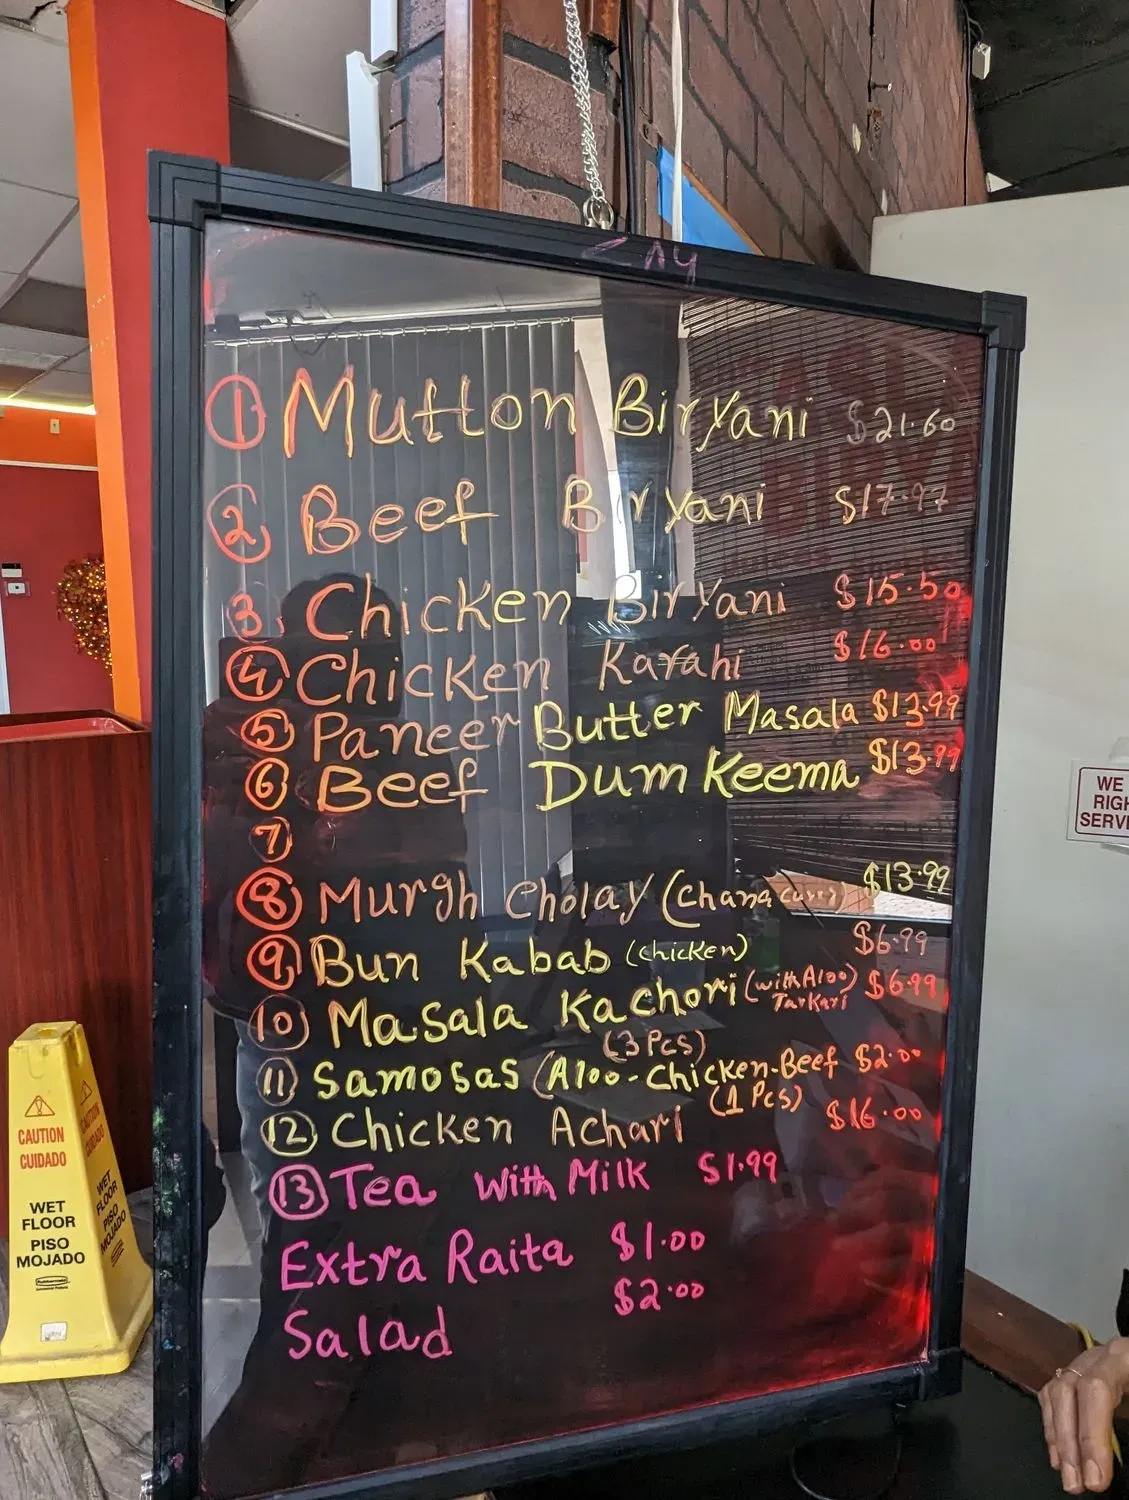 1 Mutton Biryani $21.60
2 Beef Biryani $17.97
3 Chicken Biryani $15.50
4 Chicken Karahi $16.00
5 Paneer Butter Masala $13.99
6 Beef Dum Keema $13.99
7
8 Murgh Cholay (Chana Curry) $13.99
9 Bun Kabab (chicken) $6.99
10 Masala Kachori (with Aloo Tarkari) $6.99
(3 Pcs)
11 Samosas (Aloo-Chicken-Beef $2.00
(1 Pcs)
12 Chicken Achari $16.00
13 Tea with Milk $1.99
Extra Raita $1.00
Salad $2.00
CAUTION
CUIDADO
WET
FLOOR
PISO
MOJADO
WET
FLOOR
PISO
MOJADO
WE
RIGH
SERV